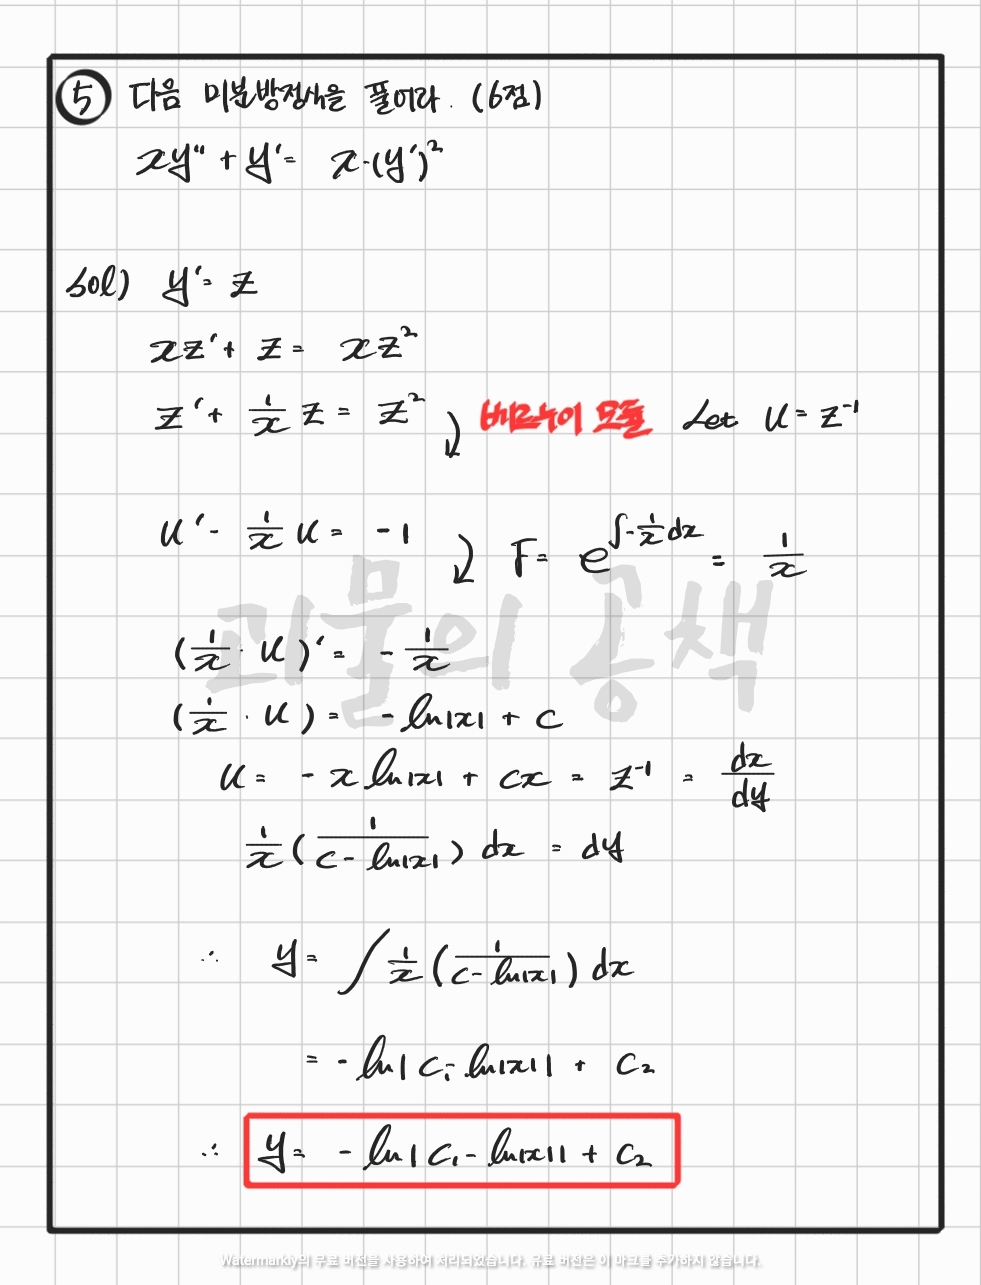 ⑤ 다음 미분방정식을 풀어라. (6점)
xy'' + y' = x·(y')²
sol) y' = z
xz' + z = xz²
z' + 1/x z = z² 베르누이 모듈 Let u = z⁻¹
u' - 1/x u = -1 F = e^∫-1/x dx = 1/x
괴물의 공책
(1/x · u)' = -1/x
(1/x · u) = -ln|x| + c
u = -x ln|x| + cx = z⁻¹ = dx/dy
1/x (1/(c - ln|x|)) dx = dy
∴ y = ∫ 1/x (1/(c - ln|x|)) dx
= -ln|c₁ - ln|x|| + c₂
∴ y = -ln|c₁ - ln|x|| + c₂
Watermarkly의 무료 버전을 사용하여 처리되었습니다. 유료 버전은 이 마크를 추가하지 않습니다.